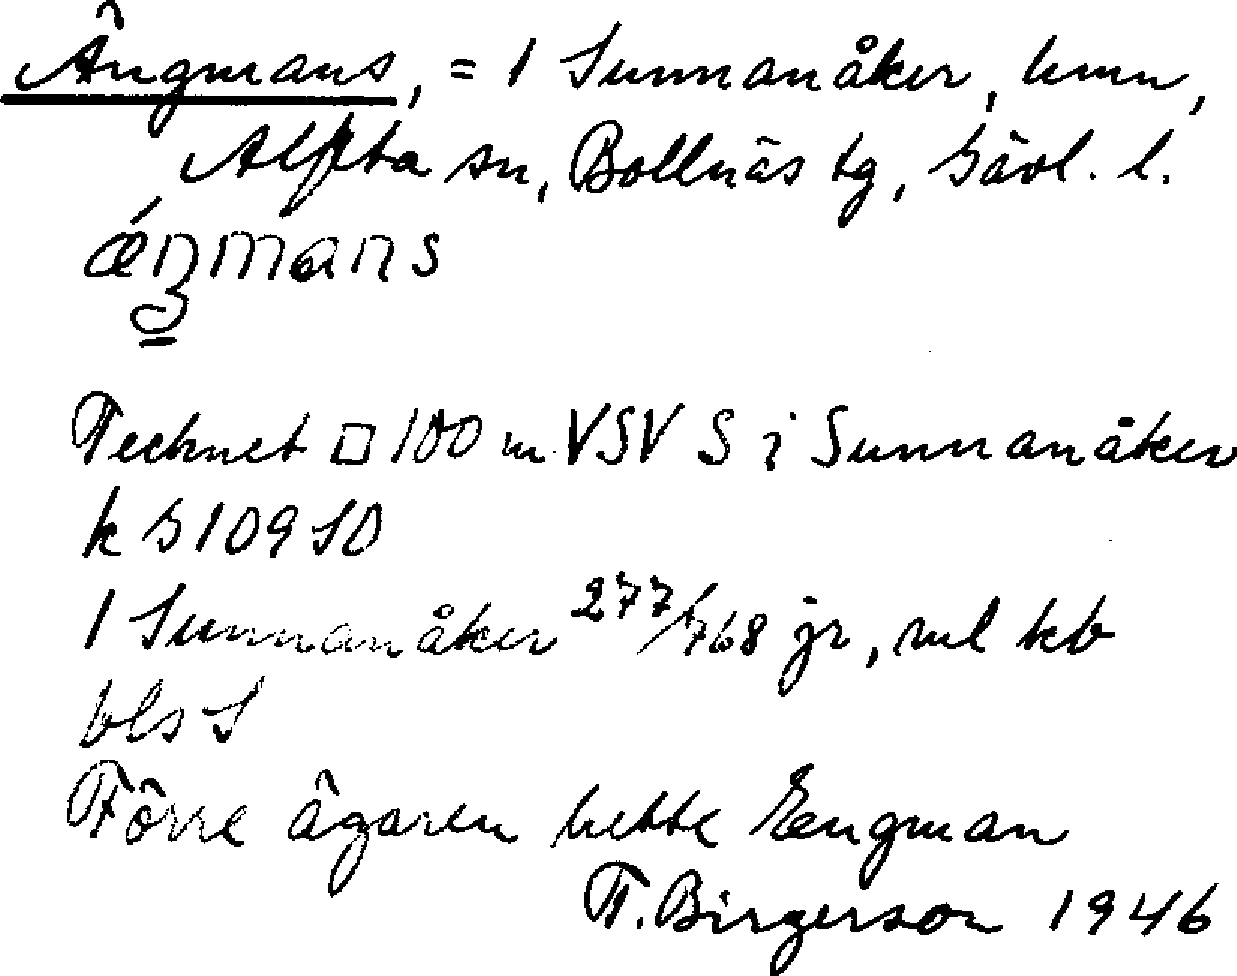 Ängmans, = 1 Sunnanåker, hmn,
Alfta sn, Bollnäs tg, Gävl. l.
Tecknet □ 100 m VSV S i Sunnanåker
k G 109 SO
1 Sunnanåker 277/768 jr, ml kb
bls S
Förre ägaren hette Engman
T. Birgerson 1946